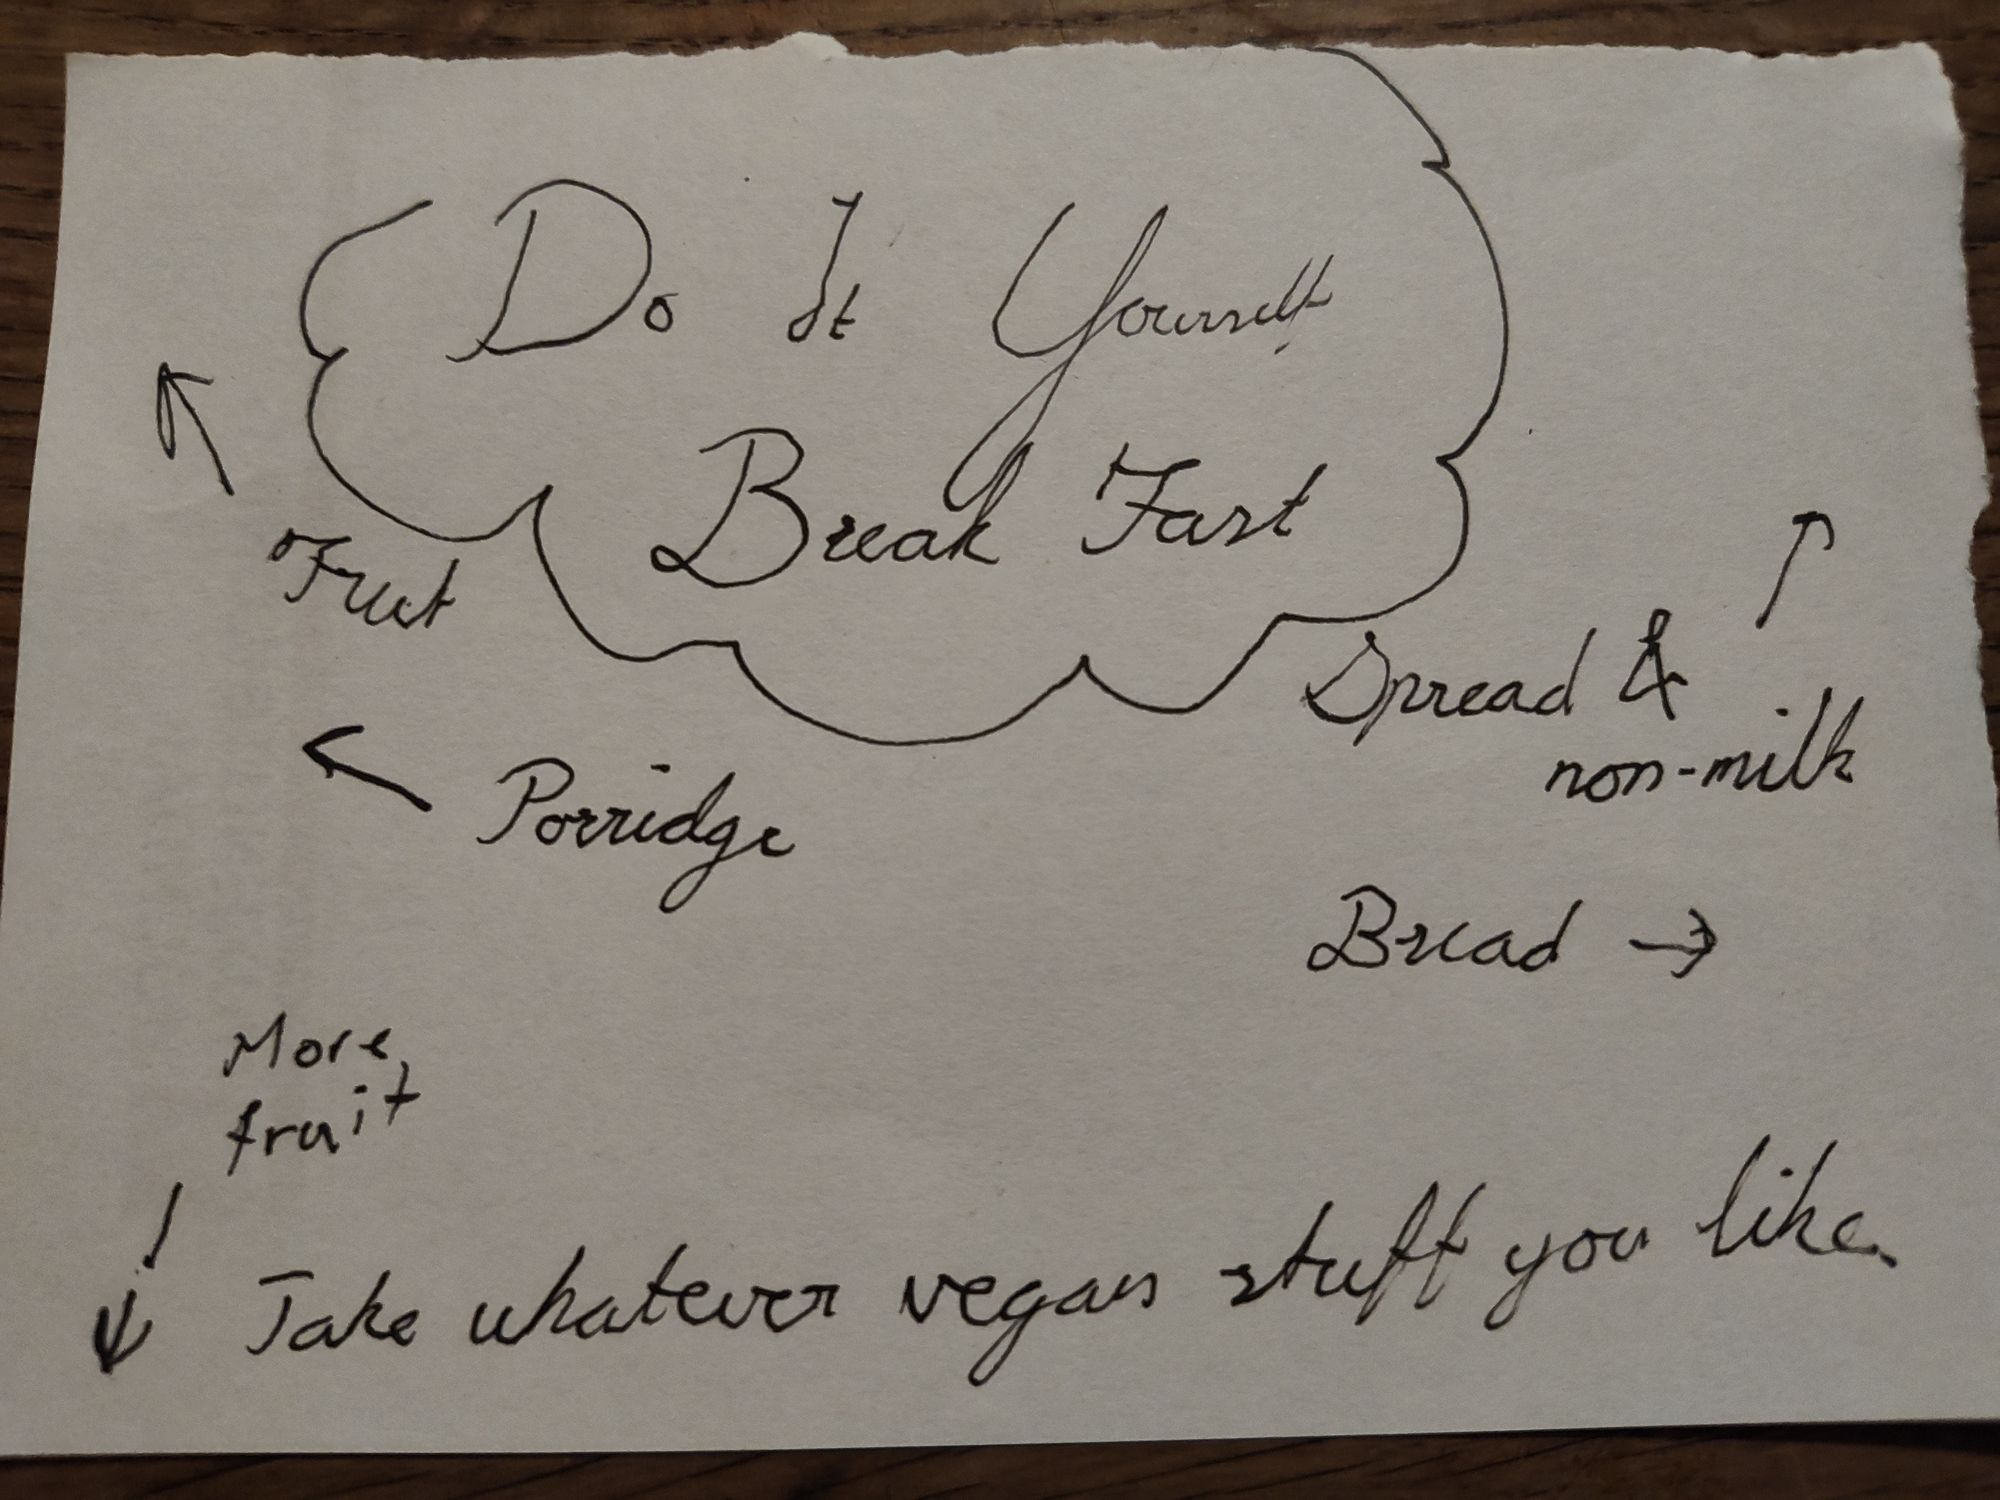 Do It Yourself
Break Fast
Fruit
Spread &
non-milk
Porridge
Bread →
More
fruit
Take whatever vegan stuff you like.